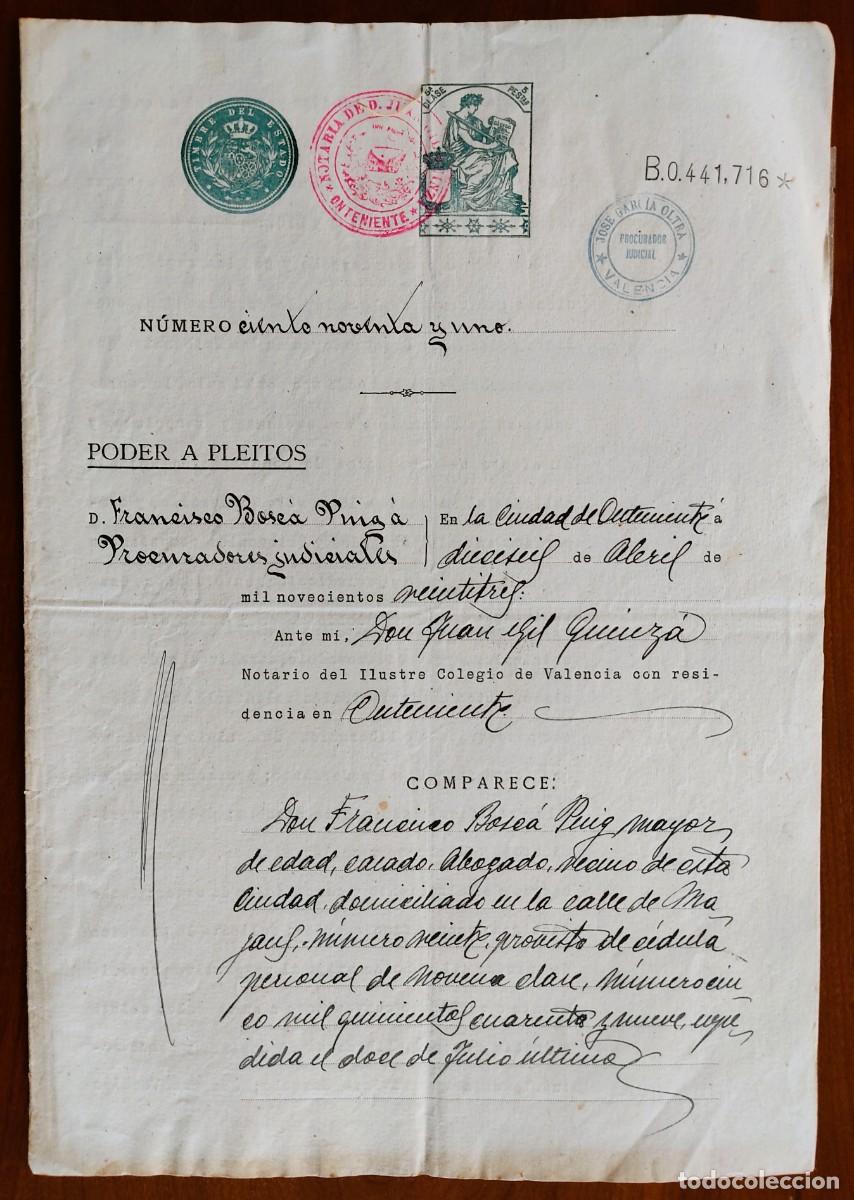 TIMBRE DEL ESTADO
NOTARIA DE D. JUAN
ONTENIENTE
6ª CLASE 5 PESTAS
B.0.441,716*
JOSE GARCÍA OLTRA
PROCURADOR
JUDICIAL
VALENCIA
NÚMERO ciento noventa y uno.
PODER A PLEITOS
D. Francisco Boscá Puig á
Procuradores judiciales
En la Ciudad de Onteniente á
dieciseis de Abril de
mil novecientos veintitres:
Ante mi, Don Juan Gil Quinzá
Notario del Ilustre Colegio de Valencia con resi-
dencia en Onteniente.
COMPARECE:
Don Francisco Boscá Puig mayor
de edad, casado, Abogado, vecino de esta
Ciudad, domiciliado en la calle de Ma
yans, número veinte, provisto de cédula
personal de novena clase, número cin
co mil quinientos cuarenta y nueve, expe
dida el doce de Julio último
todocoleccion